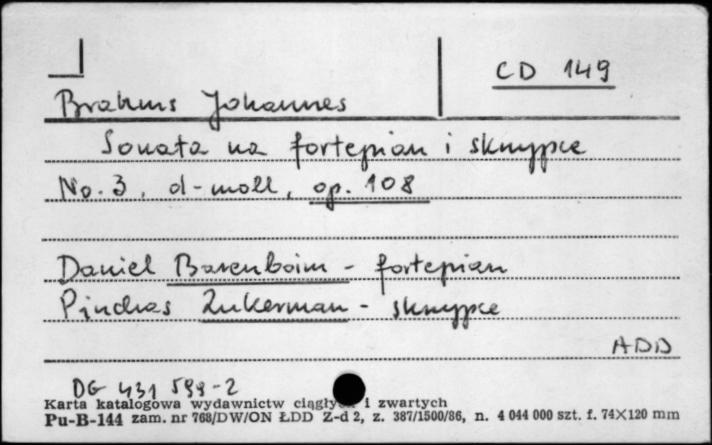 CD 149
Brahms Johannes
Sonata na fortepian i skrzypce
No. 3, d-moll, op. 108
Daniel Barenboim - fortepian
Pinchas Zukerman - skrzypce
ADD
DG 431 599-2
Karta katalogowa wydawnictw ciągłych i zwartych
Pu-B-144 zam. nr 768/DW/ON ŁDD Z-d 2, z. 387/1500/86, n. 4 044 000 szt. f. 74×120 mm